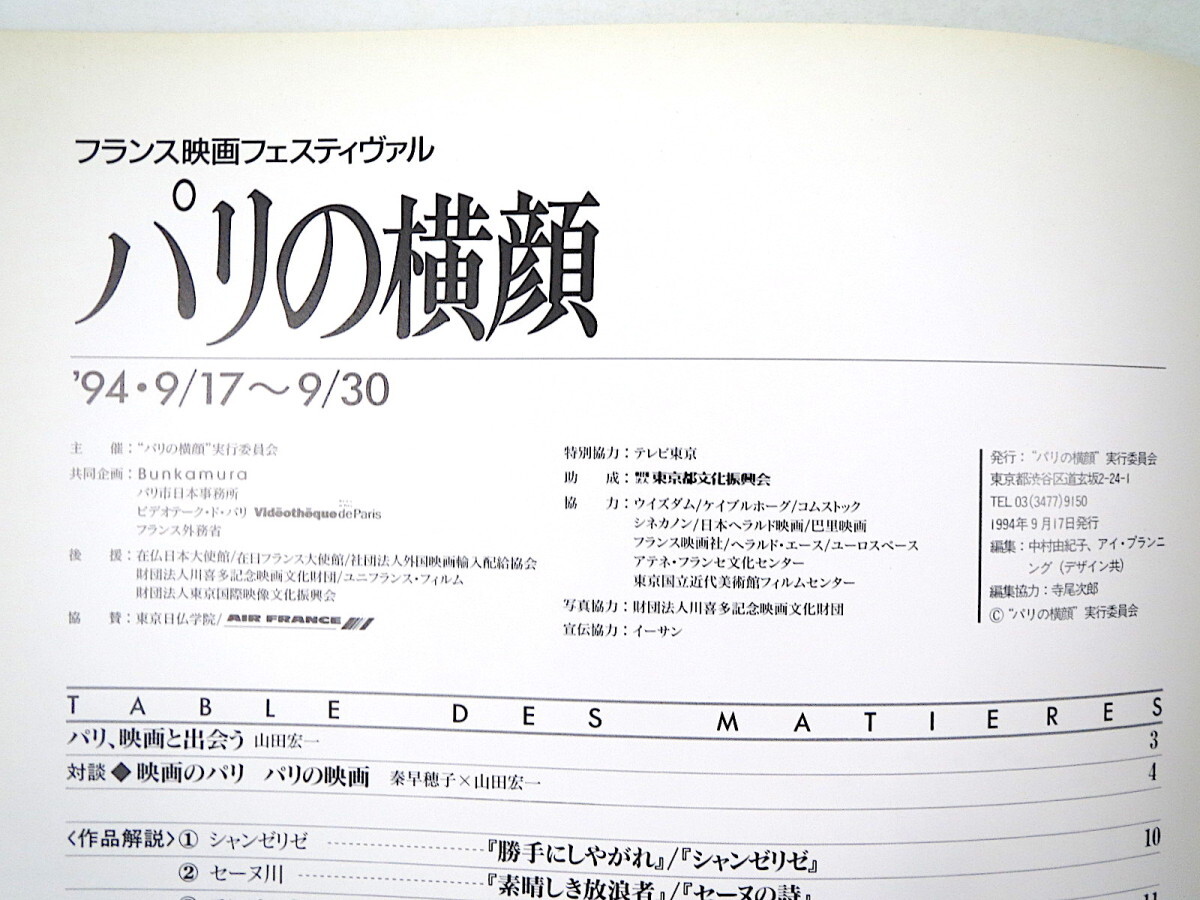 フランス映画フェスティヴァル
パリの横顔
'94・9/17〜9/30
主 催：“パリの横顔”実行委員会
共同企画：Bunkamura
パリ市日本事務所
ビデオテーク・ド・パリ Vidéothèque de Paris
フランス外務省
後 援：在仏日本大使館/在日フランス大使館/社団法人外国映画輸入配給協会
財団法人川喜多記念映画文化財団/ユニフランス・フィルム
財団法人東京国際映像文化振興会
協 賛：東京日仏学院/AIR FRANCE
特別協力：テレビ東京
助 成：東京都文化振興会
協 力：ウイズダム/ケイブルホーグ/コムストック
シネカノン/日本ヘラルド映画/巴里映画
フランス映画社/ヘラルド・エース/ユーロスペース
アテネ・フランセ文化センター
東京国立近代美術館フィルムセンター
写真協力：財団法人川喜多記念映画文化財団
宣伝協力：イーサン
発行：“パリの横顔”実行委員会
東京都渋谷区道玄坂2-24-1
TEL 03(3477)9150
1994年9月17日発行
編集：中村由紀子、アイ・プランニ
ング（デザイン共）
編集協力：寺尾次郎
©“パリの横顔”実行委員会
TABLE DES MATIERES
パリ、映画と出会う 山田宏一 3
対談◆映画のパリ パリの映画 秦早穂子×山田宏一 4
〈作品解説〉① シャンゼリゼ 『勝手にしやがれ』/『シャンゼリゼ』 10
② セーヌ川 『素晴しき放浪者』/『セーヌの詩』